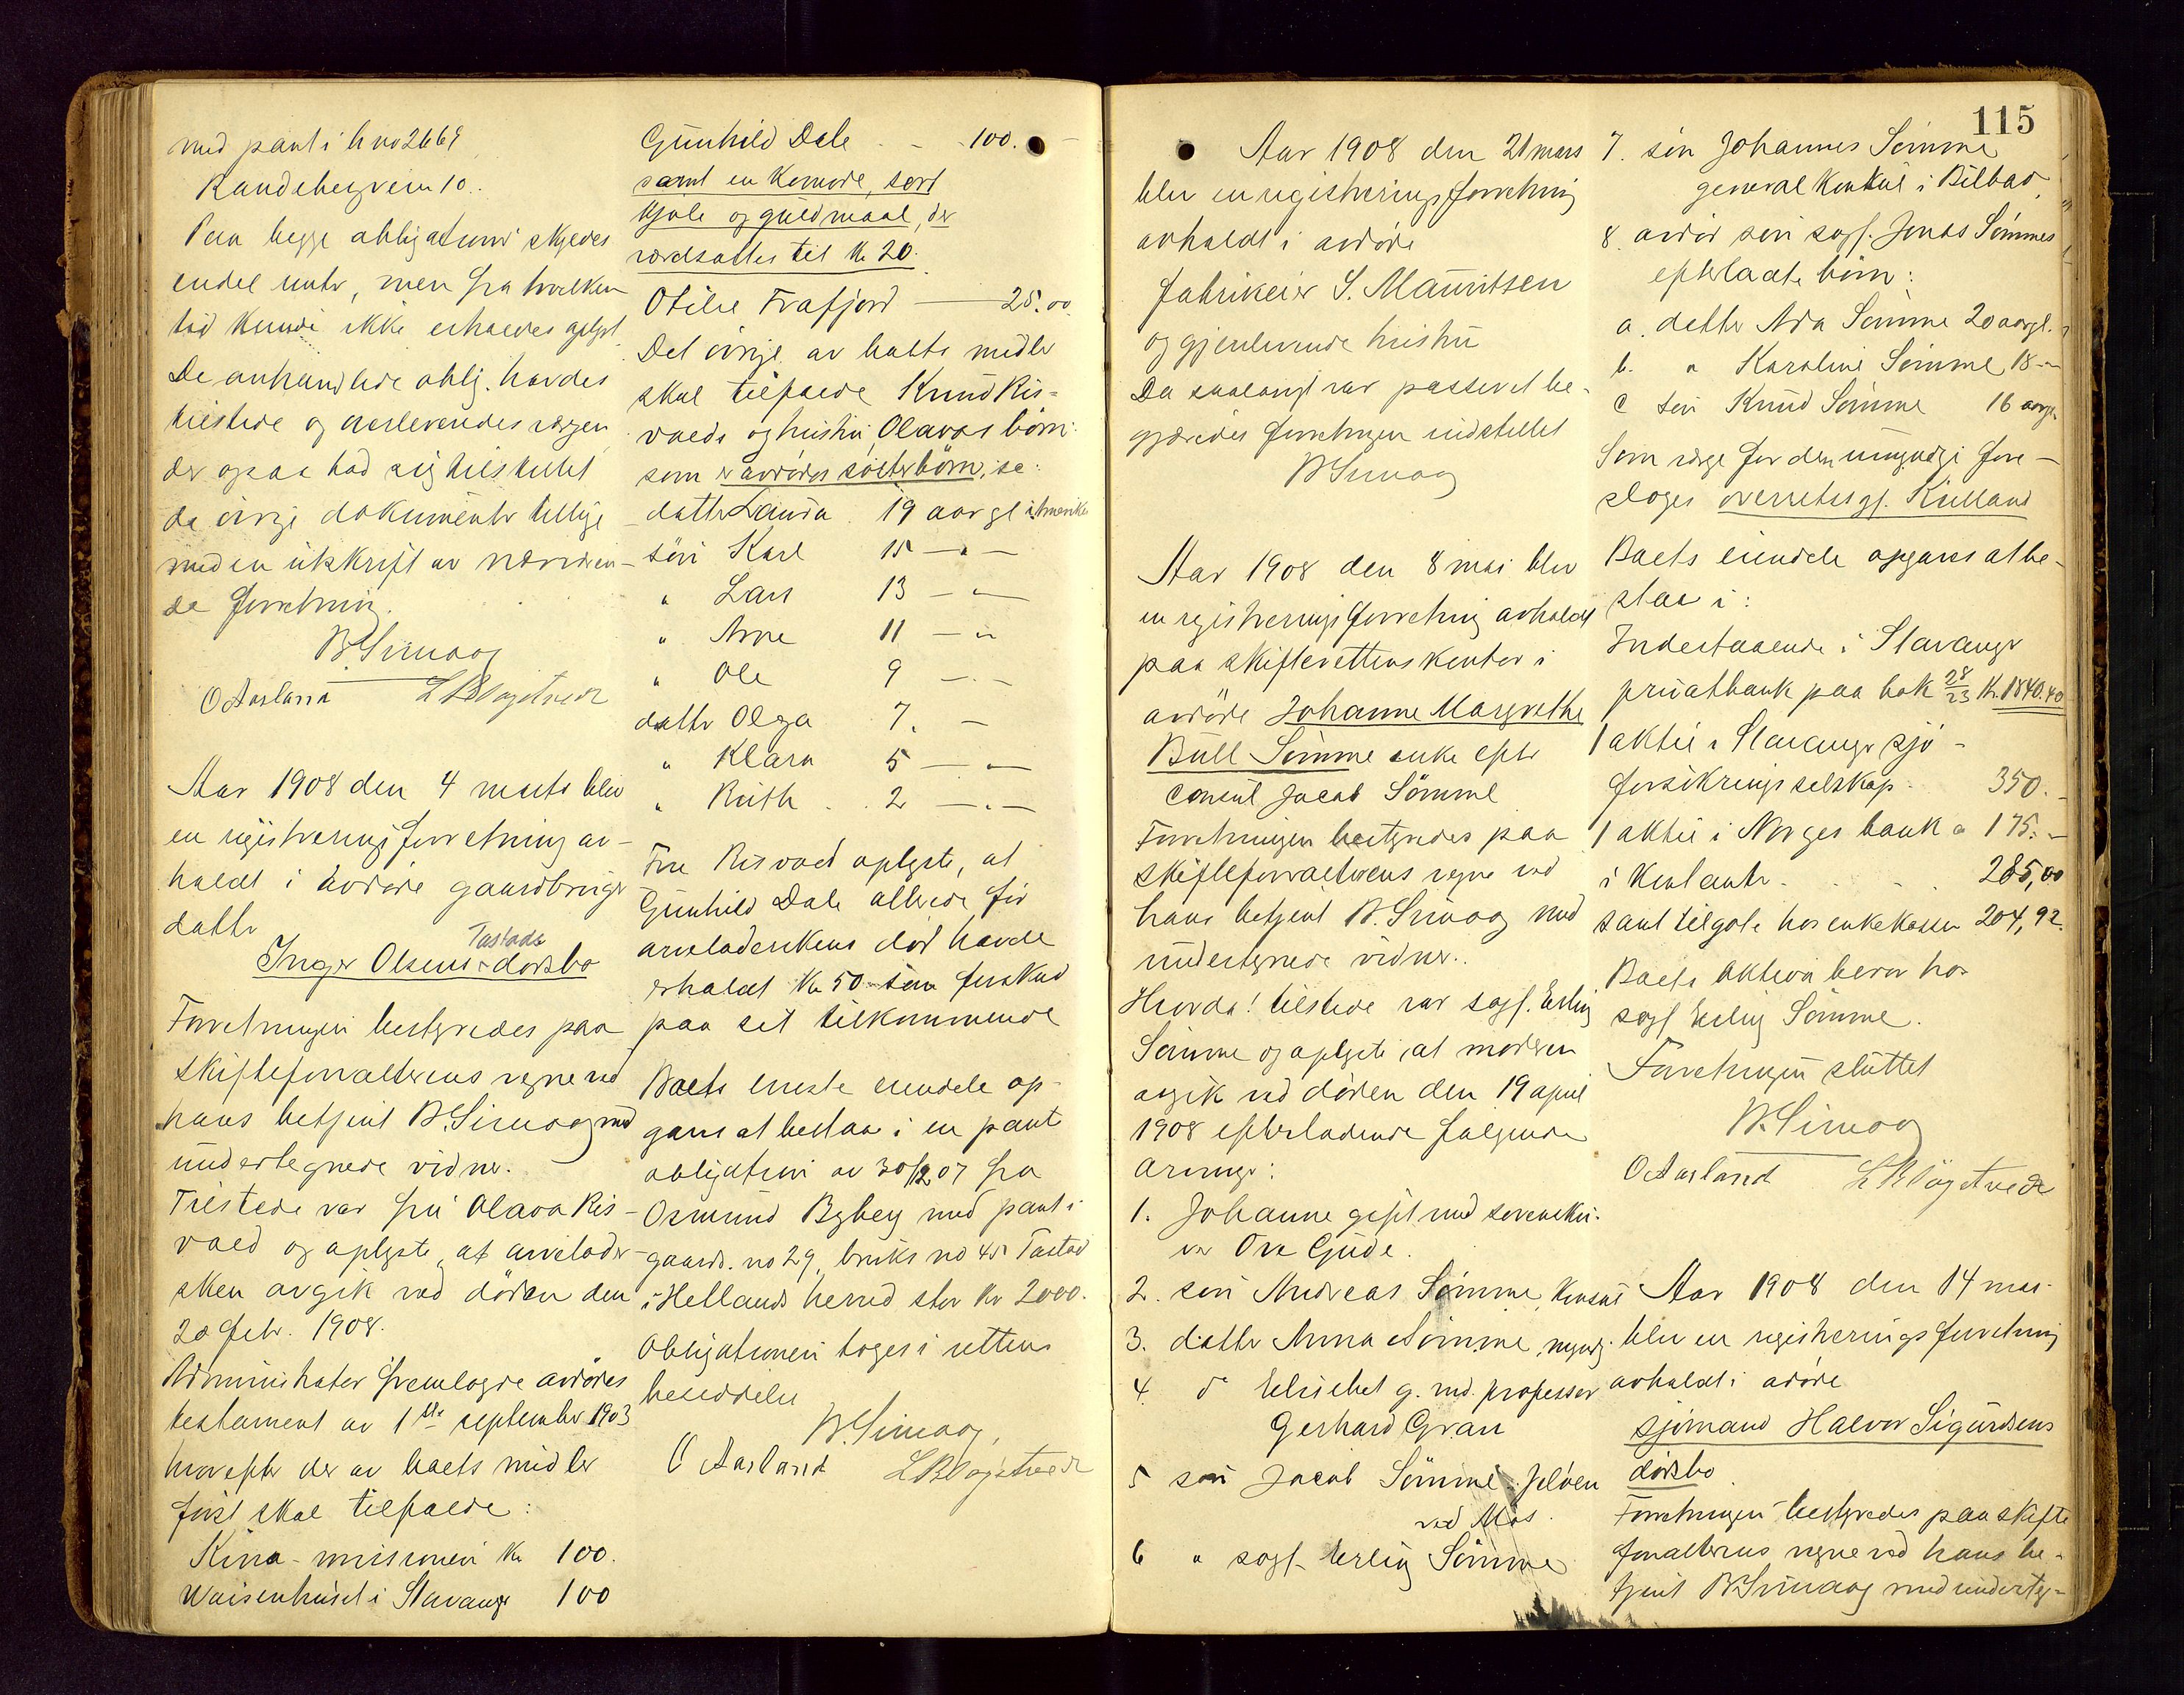 med pant i h no 2669
Randebergveien 10.
Paa begge obligationer skyldes
endel renter, men fra hvilken
tid kunde ikke erholdes oplyst.
De omhandlede oblig. havdes
tilstede og overleveredes vergen
der ogsaa had sig tilstillet
de övrige dokumenter tillige
med en utskrift av nærværen-
de forretning.
B. Simoog
O Aasland L B Vogstvedt
Aar 1908 den 4 marts blev
en registreringsforretning av-
holdt i avdöde gaardbruger
datter
Tastads
Inger Olsens dödsbo
Forretningen bestyredes paa
skifteforvalterens vegne ved
hans betjent B. Simoog med
undertegnede vidner.
Tilstede var fru Olava Ris-
vold og oplyste, at arvelader-
sken avgik ved döden den
20 febr. 1908.
Administrator fremlagde avdödes
testament av 1ste september 1903
hvorefter der av boets midler
först skal tilfalde:
Kina-missionen Kr 100.
Waisenhuset i Stavanger 100
Gunhild Dale - - 100. -
samt en Komode, sort
kjole og guldmaal, der
værdsattes til Kr 20.
Otilie Frafjord — 25.00
Det övrige av boets midler
skal tilfalde Knud Ris-
volds og hustru Olavas börn
som er avdödes sösterbörn, se:
datter Laura 19 aar gl i Amerika
sön Karl 15 — " —
" Lars 13 — " —
" Arne 11 — "
" Ole 9 — " —
datter Olga 7. —
" Klara 5 — " —
" Ruth . . 2 — " —
Fru Risvold oplyste, at
Gunhild Dale allerede för
arveladerskens död havde
erholdt Kr 50 som forskud
paa sit tilkommende
Boets eneste eiendele op-
gaves at bestaa i en pant
obligation av 30/12 07 fra
Osmund Byberg med pant i
gaards. no 29, bruks no 45 Tastad
i Hetlands herred stor Kr 2000.
Obligationen toges i rettens
besiddelse
B. Simoog,
O Aasland L B Vogstvedt
115
Aar 1908 den 21 mars
blev en registreringsforretning
avholdt i avdöde
fabrikeier S. Mauritsen
og gjenlevende hustru
Da saalangt var passeret be-
gjæredes forretningen indstillet
B Simoog
Aar 1908 den 8 mai blev
en registreringsforretning avholdt
paa skifterettens kontor i
avdöde Johanne Margrethe
Bull Sömme enke efter
Consul Jacob Sömme
Forretningen bestyredes paa
skifteforvalterens vegne ved
hans betjent B. Simoog med
undertegnede vidner.
Hvorda! tilstede var sagf. Erling
Sömme og oplyste, at moderen
avgik ved döden den 19 april
1908 efterladende fölgende
arvinger:
1. Johanne gift med
Ove Gude.
2. sön Andreas Sömme, konsul
3. datter Anna Sömme, myndig.
4. do Elisebet g. med. professor
Gerhard Gran
5 sön Jacob Sömme Jelöen
ved Mos.
6 " sagf. Erling Sömme
7. sön Johannes Sömme
generalkonsul i Bilbao
8. avdöd sön sagf. Jonas Sömmes
efterladte börn:
a. datter Ada Sömme 20 aargl.
b. " Karoline Sömme, 18 — "
c sön Knud Sömme 16 aargl.
Som verge for den umyndige fore-
sloges overretssgf. Kielland
Boets eiendele opgaves at be-
staa i:
Indestaaende i Stavanger
privatbank paa bok 28/23 Kr. 1840.40
1 aktie i Stavanger sjö-
forsikringsselskap - 350. -
1 aktie i Norges bank a 175. -
i kontanter - . . 285,00
samt tilgode hos enkekassen 204,92.
Boets aktiva beror hos
sagf Erling Sömme.
Forretningen sluttet
B. Simoog
O Aasland L B Vogstvedt
Aar 1908 den 14 mai
blev en registreringsforretning
avholdt i avdöde
sjömand Halvor Sigurdsens
dödsbo
Forretningen bestyredes paa skifte
forvalterens vegne ved hans be-
tjent B. Simoog med underteg-